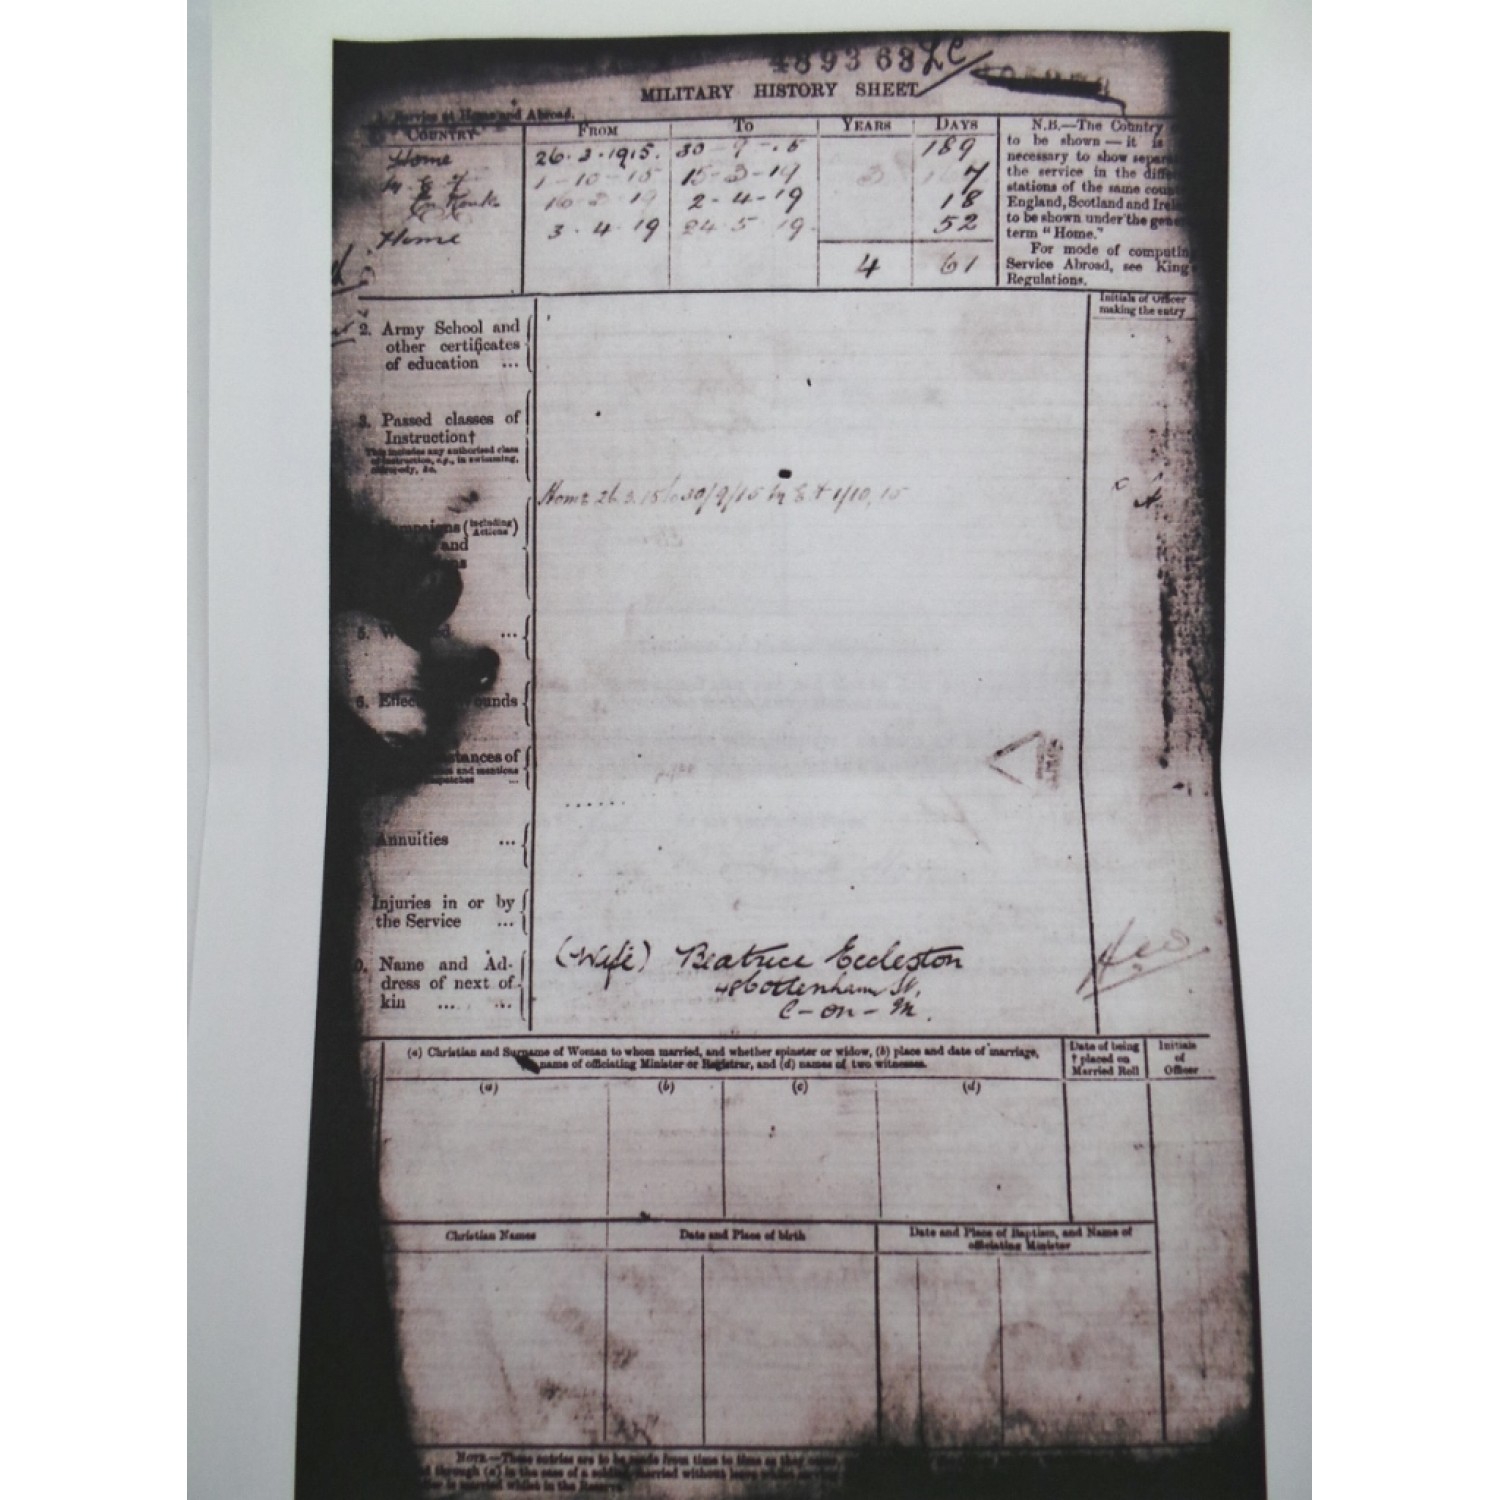 48936 8 LC
MILITARY HISTORY SHEET
1. Service at Home and Abroad.
COUNTRY FROM TO YEARS DAYS
Home 26.3.1915. 30-9-15 189
M E F 1-10-15 15-3-19 3 167
En Route 16-3-19 2-4-19 18
Home 3.4.19 24.5.19. 52
4 61
N.B.—The Country
to be shown—it is
necessary to show
the service in the
stations of the same
England, Scotland and
to be shown under the
term "Home."
For mode of
Service Abroad, see
Regulations.
Initials of Officer
making the entry
2. Army School and
other certificates
of education ...
3. Passed classes of
Instruction†
This includes any authorised class
of instruction, e.g., in swimming,
&c.
Home 26.3.15 to 30/9/15 M E F 1/10/15
(including
Actions)
and
5. ...
6. Wounds
of
and mentions
...
Annuities ...
Injuries in or by
the Service ...
Name and Ad-
dress of next of
kin ... ...
(Wife) Beatrice Eccleston
48 Cottenham St.
C-on-M.
(a) Christian and Surname of Woman to whom married, and whether spinster or widow, (b) place and date of marriage,
name of officiating Minister or Registrar, and (d) names of two witnesses.
Date of being
† placed on
Married Roll
Initials
of
Officer
(a) (b) (c) (d)
Christian Names
Date and Place of birth
Date and Place of Baptism, and Name of
officiating Minister
NOTE.—These entries are to be made from time to time as they
through (a) in the case of a soldier married without leave whilst serving
is married whilst in the Reserve.